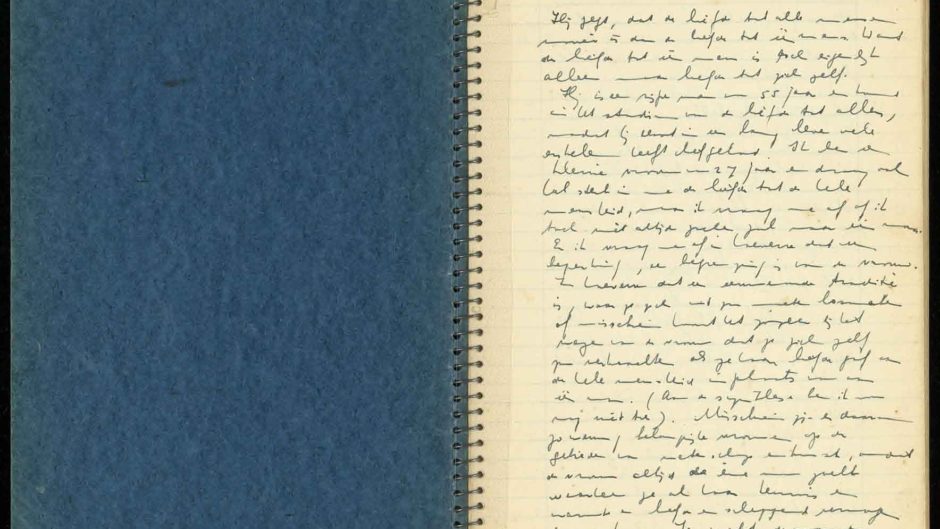 Hij zegt, dat de liefde tot alle mensen
mooier is dan de liefde tot één mens. Want
de liefde tot één mens is toch eigenlijk
alleen maar liefde tot zich zelf.
Hij is een rijpe man van 55 jaar en komt
in het stadium van de liefde tot allen,
nadat hij eerst in een lang leven vele
enkelen heeft liefgehad. Ik ben een
kleine vrouw van 27 jaar en draag ook
heel sterk in me de liefde tot de hele
mensheid, maar ik vraag me af of ik
toch niet altijd zoeken zal naar één man.
En ik vraag me af in hoeverre dat een
beperking, een begrenzing is van de vrouw.
In hoeverre dat een eeuwenoude traditie
is, waar ze zich uit zou moeten losmaken
of misschien hoort het zozeer bij het
wezen van de vrouw dat ze zich zelf
zou verkrachten als ze haar liefde gaf aan
de hele mensheid in plaats van aan
één man. (Aan een synthese ben ik nog
niet toe). Misschien zijn er daarom
zo weinig belangrijke vrouwen op de
gebieden van wetenschap en kunst, omdat
de vrouw altijd de ene man zoekt
waaraan ze al haar kennis en
warmte en liefde en scheppend vermogen